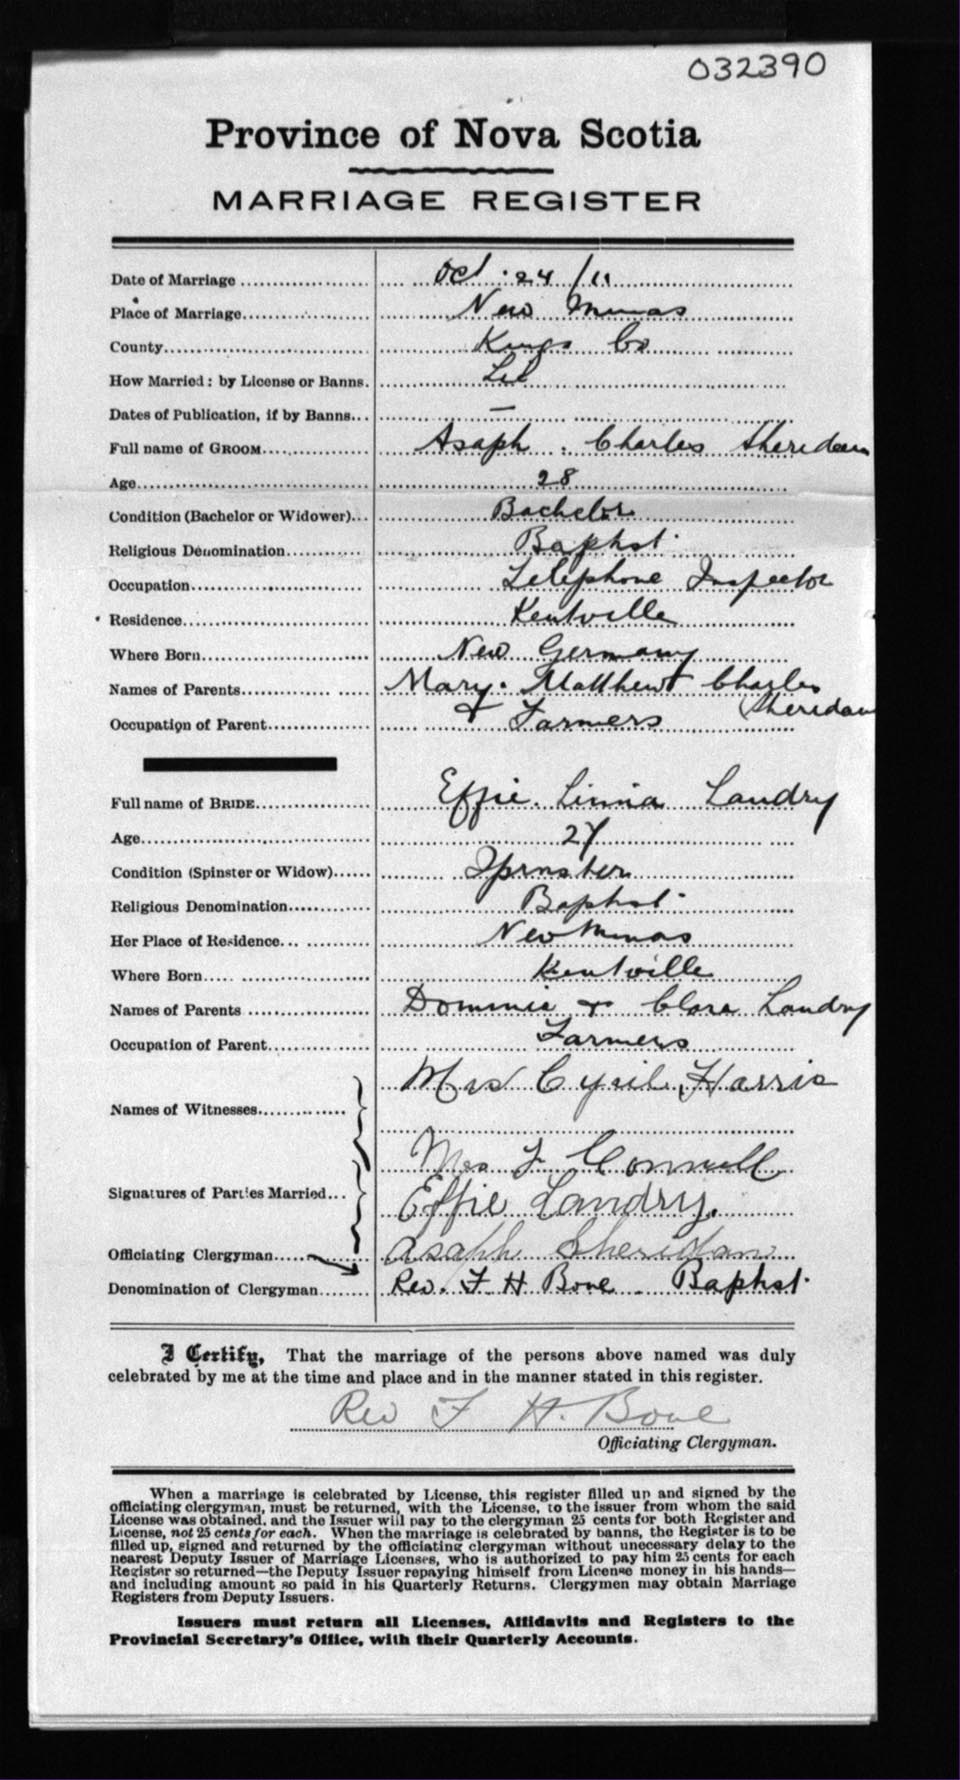 032390
Province of Nova Scotia
MARRIAGE REGISTER
Date of Marriage Oct. 24/11
Place of Marriage New Minas
County Kings Co
How Married: by License or Banns. Lic
Dates of Publication, if by Banns —
Full name of GROOM Asaph. Charles Sheridan
Age 28
Condition (Bachelor or Widower) Bachelor
Religious Denomination Baptist
Occupation Telephone Inspector
Residence Kentville
Where Born New Germany
Names of Parents Mary. Matthew Charles
Sheridan
Occupation of Parent + Farmers
Full name of BRIDE Effie. Linnia Landry
Age 27
Condition (Spinster or Widow) Spinster
Religious Denomination Baptist
Her Place of Residence New Minas
Where Born Kentville
Names of Parents Dominie + Clara Landry
Occupation of Parent Farmers
Mrs Cyril Harris
Names of Witnesses
Mrs F Connell
Signatures of Parties Married Effie Landry.
Officiating Clergyman Asahh Sheridan
Denomination of Clergyman Rev. F H Bone Baptist
I Certify, That the marriage of the persons above named was duly
celebrated by me at the time and place and in the manner stated in this register.
Rev F H. Bone
Officiating Clergyman.
When a marriage is celebrated by License, this register filled up and signed by the
officiating clergyman, must be returned, with the License, to the issuer from whom the said
License was obtained, and the Issuer will pay to the clergyman 25 cents for both Register and
License, not 25 cents for each. When the marriage is celebrated by banns, the Register is to be
filled up, signed and returned by the officiating clergyman without unnecessary delay to the
nearest Deputy Issuer of Marriage Licenses, who is authorized to pay him 25 cents for each
Register so returned—the Deputy Issuer repaying himself from License money in his hands—
and including amount so paid in his Quarterly Returns. Clergymen may obtain Marriage
Registers from Deputy Issuers.
Issuers must return all Licenses, Affidavits and Registers to the
Provincial Secretary's Office, with their Quarterly Accounts.